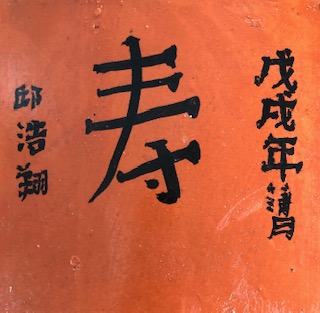 戊戌年清月
寿
邱浩翔